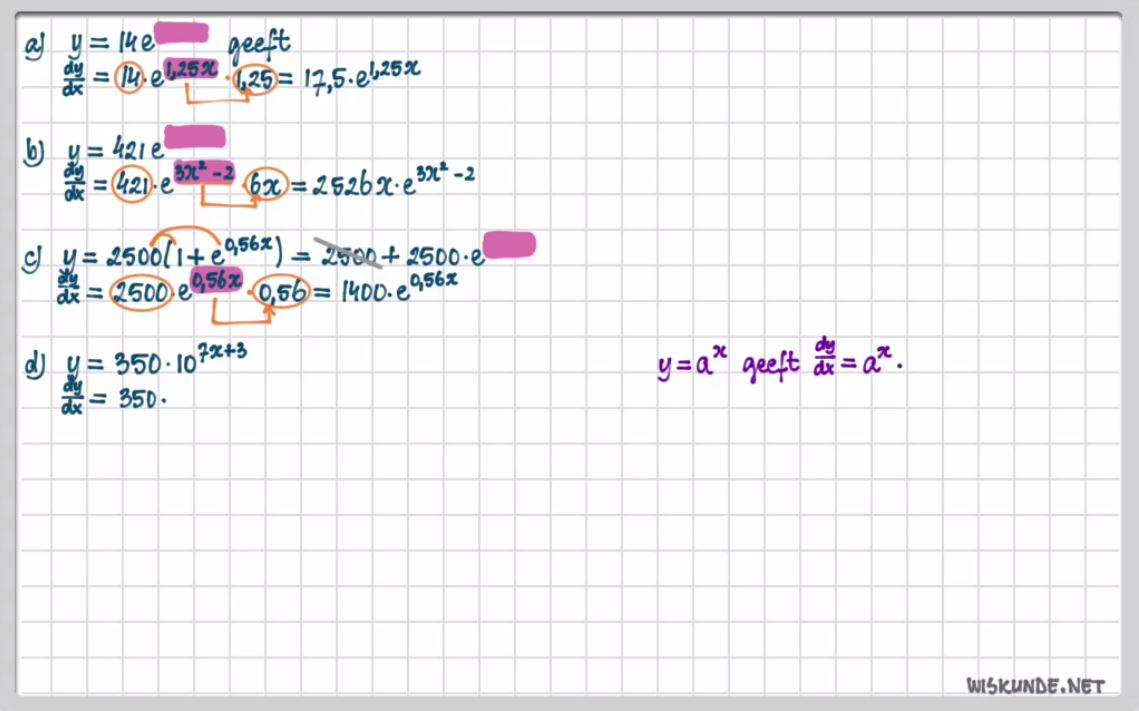 a) y = 14e geeft
dy/dx = 14 · e^1,25x · 1,25 = 17,5 · e^1,25x
b) y = 421e
dy/dx = 421 · e^3x² - 2 · 6x = 2526x · e^3x² - 2
c) y = 2500(1 + e^0,56x) = 2500 + 2500 · e
dy/dx = 2500 · e^0,56x · 0,56 = 1400 · e^0,56x
d) y = 350 · 10^7x+3
dy/dx = 350 ·
y = a^x geeft dy/dx = a^x ·
WISKUNDE.NET